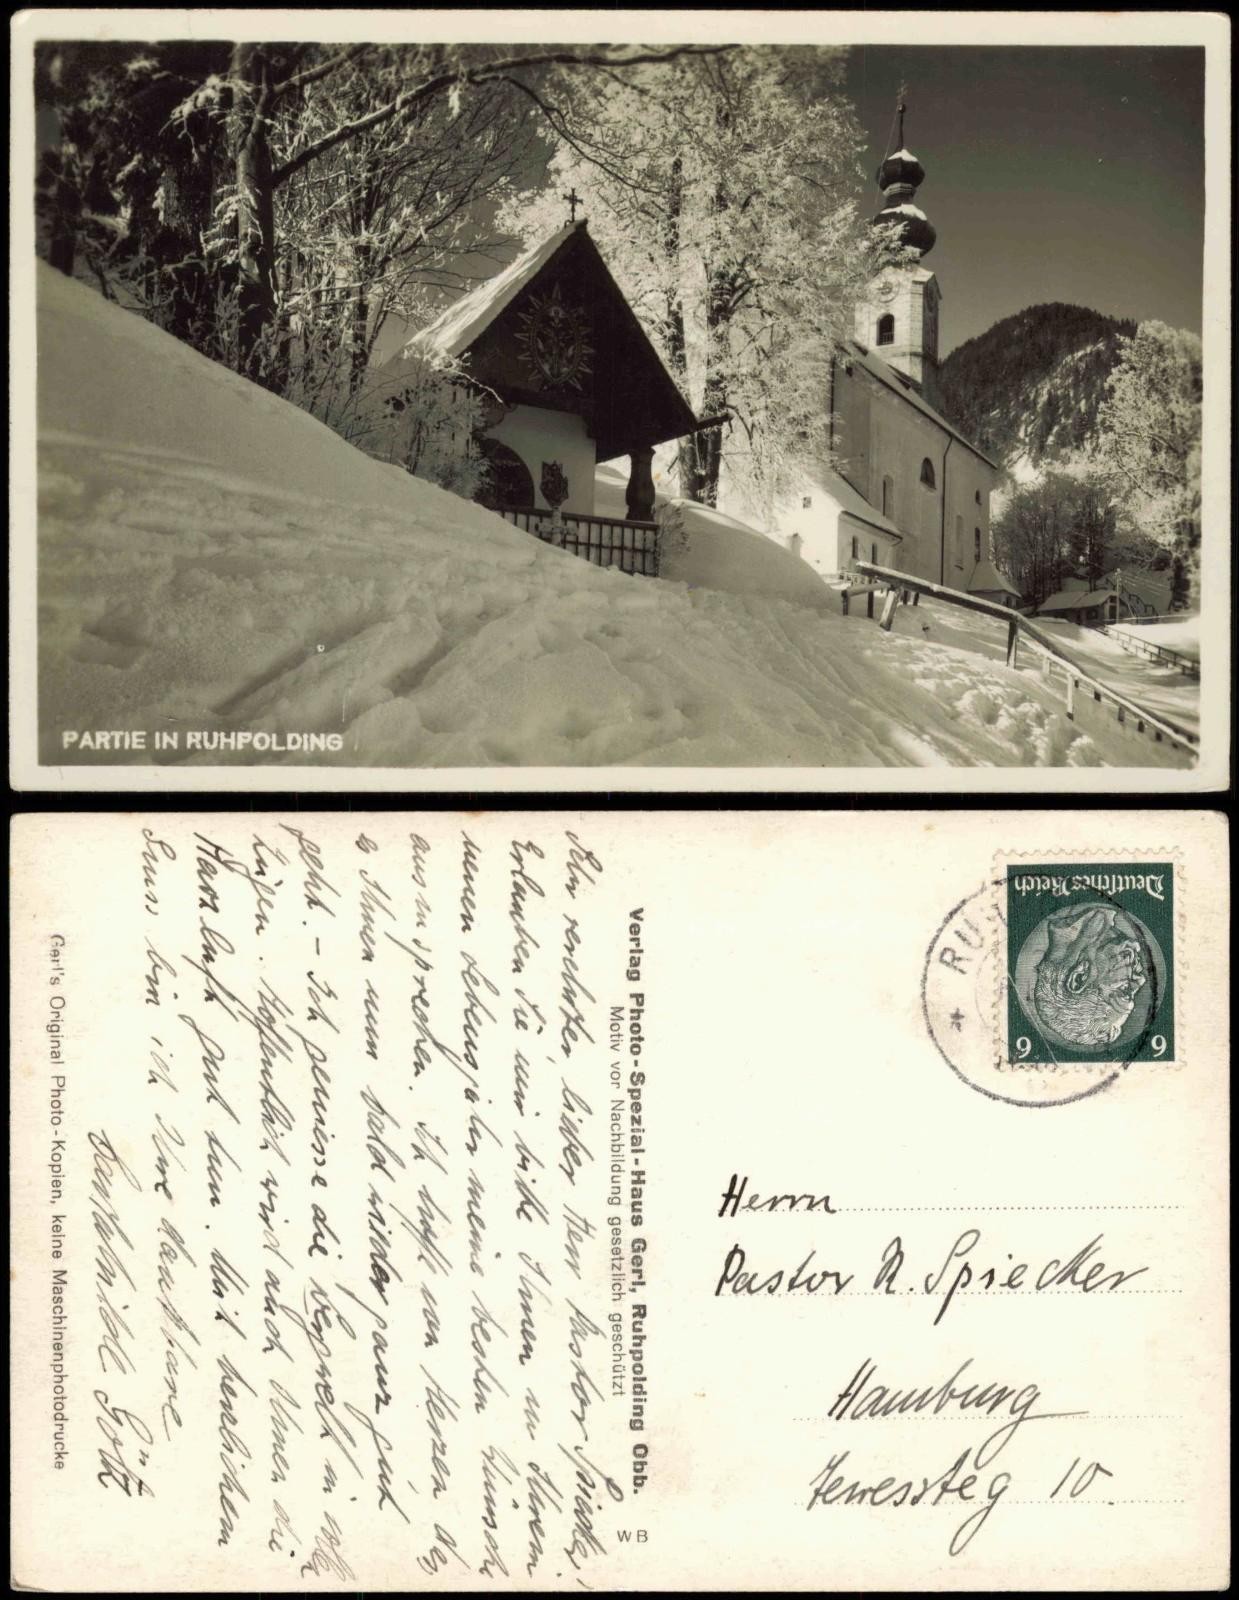 PARTIE IN RUHPOLDING
Sehr verehrter, lieber Herr Pastor Spiecker!
Erlauben Sie mir bitte Ihnen zu Ihrem
neuen Lebensjahr meine besten Wünsche
auszusprechen. Ich hoffe von Herzen daß
es Ihnen nun bald wieder ganz gut
geht. – Ich geniesse die Bergwelt in vollen
Zügen. Hoffentlich wird auch Ihnen die
gut tun. Mit herzlichem
Gruss bin ich Ihre dankbare
Götz
Gerl's Original Photo-Kopien, keine Maschinenphotodrucke
Verlag Photo-Spezial-Haus Gerl, Ruhpolding Obb.
Motiv vor Nachbildung gesetzlich geschützt
WB
Deutsches Reich
6 6
* RUH
Herrn
Pastor R. Spiecker
Hamburg
Jewessteg 10.